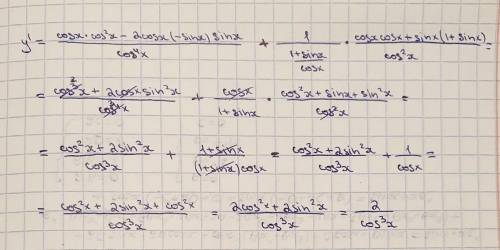 y' = (cosx·cos²x − 2cosx(−sinx)sinx)/cos⁴x + 1/((1+sinx)/cosx) · (cosxcosx + sinx(1+sinx))/cos²x =
= (cos³x + 2cosxsin²x)/cos⁴x + cosx/(1+sinx) · (cos²x + sinx + sin²x)/cos²x =
= (cos²x + 2sin²x)/cos³x + (1+sinx)/((1+sinx)cosx) = (cos²x + 2sin²x)/cos³x + 1/cosx =
= (cos²x + 2sin²x + cos²x)/cos³x = (2cos²x + 2sin²x)/cos³x = 2/cos³x